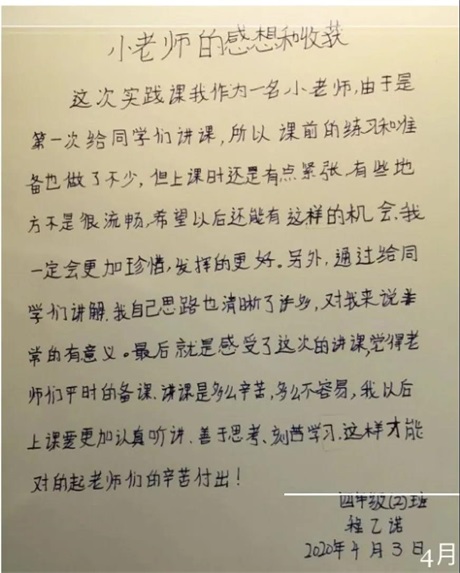 小老师的感想和收获
这次实践课我作为一名小老师,由于是
第一次给同学们讲课,所以课前的练习和准
备也做了不少,但上课时还是有点紧张,有些地
方不是很流畅,希望以后还能有这样的机会.我
一定会更加珍惜,发挥的更好。另外,通过给同
学们讲解.我自己思路也清晰了许多,对我来说非
常的有意义。最后就是感受了这次的讲课,觉得老
师们平时的备课.讲课是多么辛苦,多么不容易,我以后
上课要更加认真听讲.善于思考、刻苦学习.这样才能
对的起老师们的辛苦付出!
四年级(2)班
程乙诺
2020年4月3日
4月